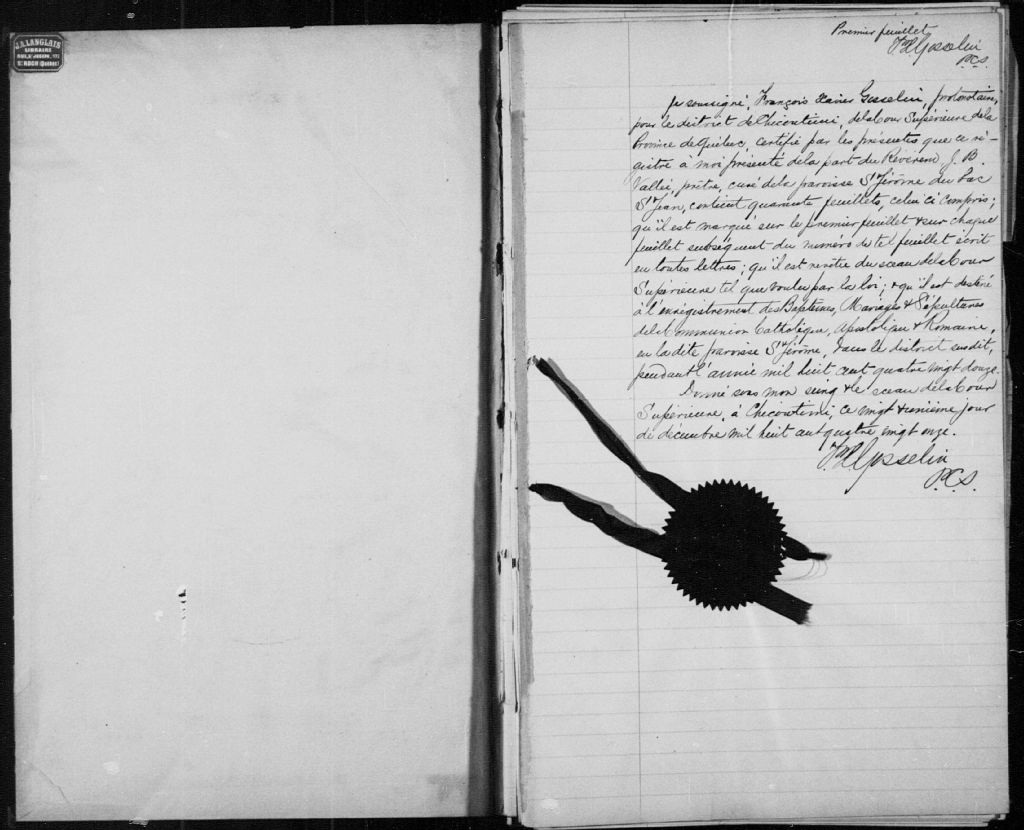 J.A. LANGLAIS
LIBRAIRE
RUE ST JOSEPH, 177
ST ROCH (Québec)
Premier feuillet
F X Gosselin
P.C.S.
Je soussigné, François Xavier Gosselin, protonotaire,
pour le district de Chicoutimi, de la Cour Supérieure de la
Province de Québec, certifie par les présentes que ce ré-
gistre à moi présenté de la part du Révérend J. B.
Vallée, prêtre, curé de la paroisse St Jérôme du Lac
St Jean, contient quarante feuillets, celui ci compris;
qu'il est marqué sur le premier feuillet & sur chaque
feuillet subséquent du numéro de tel feuillet écrit
en toutes lettres; qu'il est revêtu du sceau de la Cour
Supérieure tel que voulu par la loi; & qu'il est destiné
à l'enrégistrement des Baptêmes, Mariages & Sépultures
de la Communion Catholique, Apostolique & Romaine,
en la dite paroisse St Jérôme, dans le district susdit,
pendant l'année mil huit cent quatre vingt douze.
Donné sous mon seing & le sceau de la Cour
Supérieure, à Chicoutimi, ce vingt & unième jour
de décembre mil huit cent quatre vingt onze.
F X Gosselin
P.C.S.